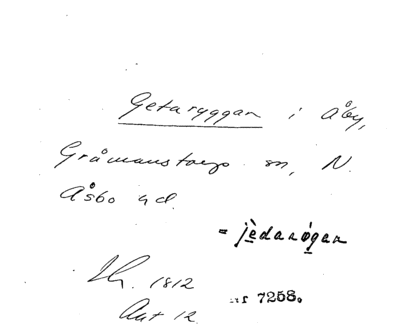 Getaryggan i Åby,
Gråmanstorps sn, N.
Åsbo hd.
= jèdarýgan
1812
Akt 12
nr 7258.